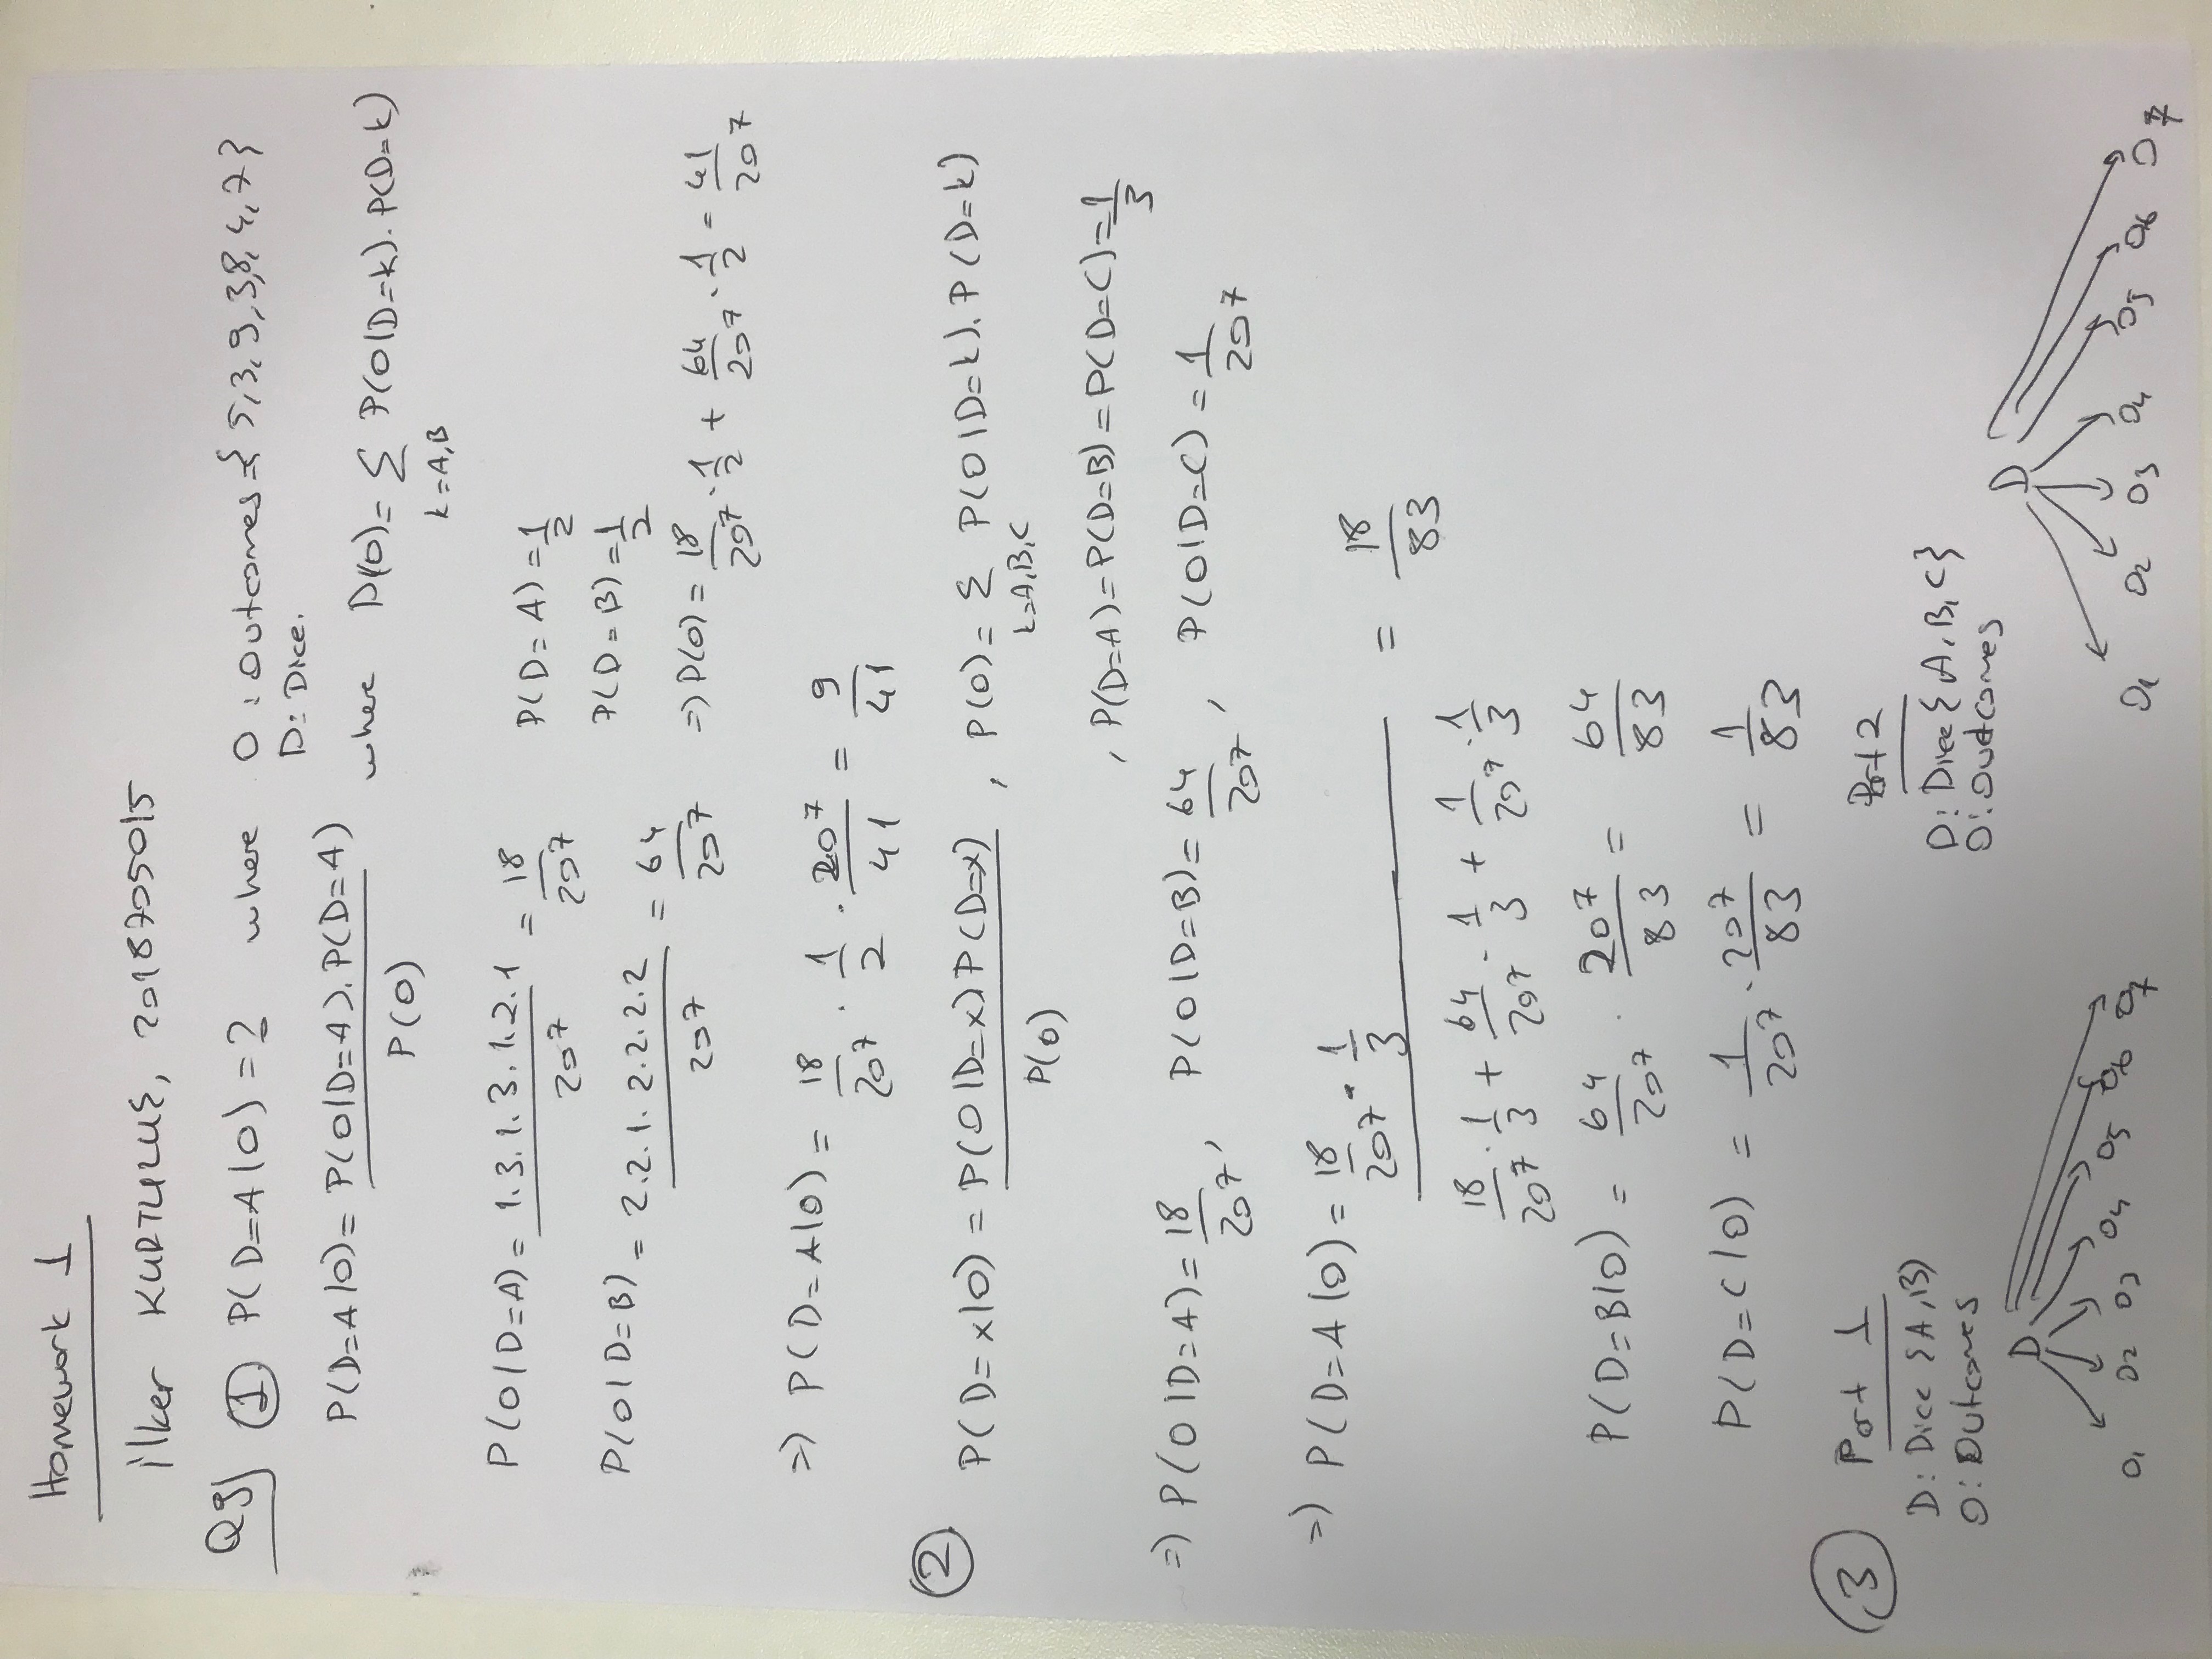 Homework 1
İlker KURTULUŞ, 2018705015
Q9) ① P(D=A|O) = ? where O : Outcomes = { 5,3,9,3,8,4,7 }
D: Dice.
P(D=A|O) = P(O|D=A). P(D=A) / P(O) where P(O) = Σ k=A,B P(O|D=k). P(D=k)
P(O|D=A) = 1.3.1.3.1.2.1 / 20^7 = 18 / 20^7 P(D=A) = 1/2
P(O|D=B) = 2.2.1.2.2.2.2 / 20^7 = 64 / 20^7 P(D=B) = 1/2
=> P(O) = 18/20^7 . 1/2 + 64/20^7 . 1/2 = 41/20^7
=> P(D=A|O) = 18/20^7 . 1/2 . 20^7/41 = 9/41
② P(D=x|O) = P(O|D=x) P(D=x) / P(O) , P(O) = Σ k=A,B,C P(O|D=k). P(D=k)
, P(D=A) = P(D=B) = P(D=C) = 1/3
=> P(O|D=A) = 18/20^7 , P(O|D=B) = 64/20^7 , P(O|D=C) = 1/20^7
=> P(D=A|O) = 18/20^7 . 1/3 / 18/20^7 . 1/3 + 64/20^7 . 1/3 + 1/20^7 . 1/3 = 18/83
P(D=B|O) = 64/20^7 . 20^7/83 = 64/83
P(D=C|O) = 1/20^7 . 20^7/83 = 1/83
③ Part 1
D: Dice {A,B}
O: Outcomes
D
O1 O2 O3 O4 O5 O6 O7
Part 2
D: Dice { A, B, C }
O: Outcomes
D
O1 O2 O3 O4 O5 O6 O7